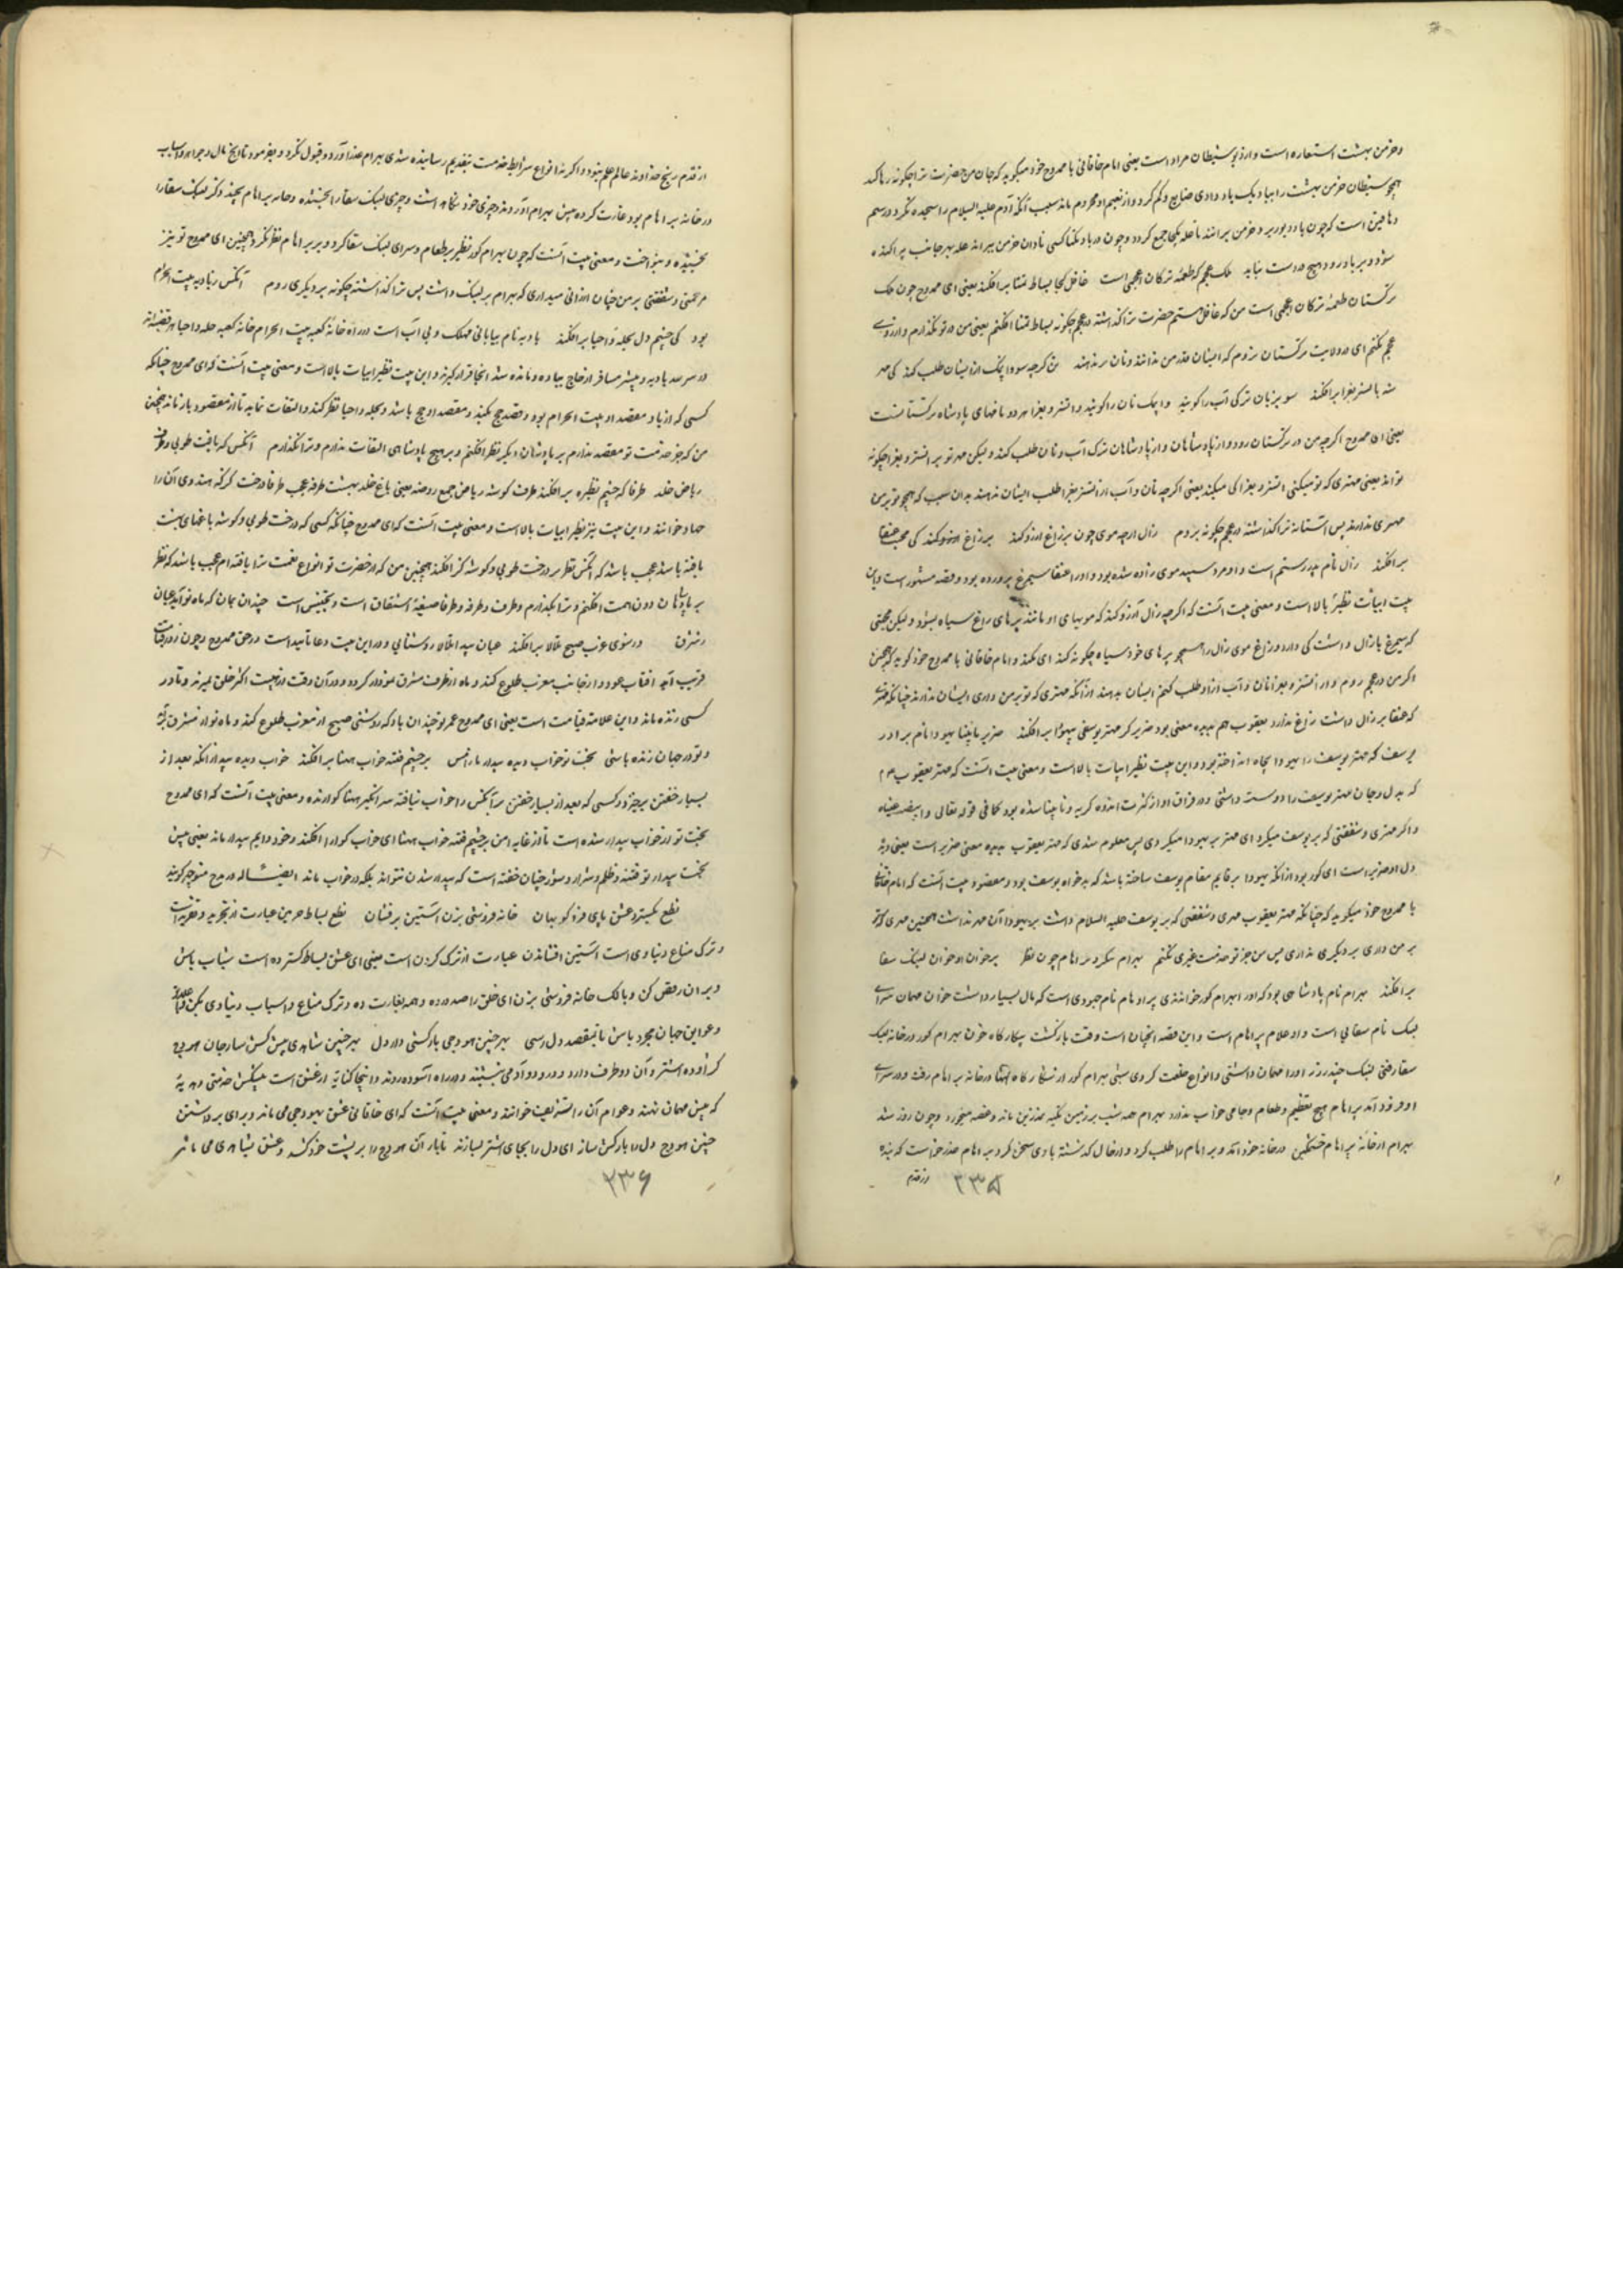 و خرمن بهشت استعاره است و ارذ شیطان مراد است یعنی امام خاقانی با ممدوح خود میگوید که جان من حضرت ترا چگونه رها کند
همچو شیطان خرمن بهشت را بباد و یک باد دادی ضایع و گم کرد و از نعیم او محروم ماند بسبب آنکه آدم علیه السلام را سجده نکرد و رسم
دهاقین است که چون باد دبور بر خرمن برانند تا غله یکجا جمع گردد و چون در باد نکبا کسی نادان خرمن براند غله بهر جانب پراکنده
شود و بر باد رود و هیچ در دست نیاید ملک عجم که طعمهٔ ترکان اعجمی است عاقل کجا بساط تمنا برافکند یعنی ای ممدوح چون ملک
ترکستان طعمهٔ ترکان اعجمی است من که عاقل هستم حضرت ترا گذاشته در عجم چگونه بساط تمنا افکنم یعنی من در تو نگذارم و آرزوی
عجم نکنم ای در ولایت ترکستان نروم که ایشان قدر من ندانند و نان ندهند تن گرچه سو و اتمک از ایشان طلب کند کی مهر
شه باتسز بغرا برافکند سو بزبان ترکی آب را گویند و اتمک نان را گویند و اتسز و بغرا هر دو نامهای پادشاه ترکستانست
یعنی ای ممدوح اگرچه من در ترکستان رود و از پادشاهان و از پادشاهان ترک آب و نان طلب کند و لیکن مهر تو بر اتسز و بغرا چگونه
تواند یعنی مهتری که تو میکنی اتسز و بغرا کی میکند یعنی اگرچه نان و آب از اتسز بغرا طلب ایشان ندهند بدان سبب که همچو تو بر من
مهری ندارند پس آستانه ترا گذاشته در عجم چگونه بروم زال ارچه موی چون پر زاغ آرزو کند بر زاغ کی محبت عنقا
برافکند زال نام پدر رستم است و او مرد سپید موی زاده شده بود و او را عنقا سیمرغ پرورده بود و قصه مشهور است و این
بیت ابیات نظیر بالا است و معنی بیت آنست که اگرچه زال آرزو کند که مویهای او مانند پرهای زاغ سیاه بشود و لیکن محبتی
که سیمرغ با زال داشت کی دارد و زاغ موی زال را همچو پرهای خود سیاه چگونه کند ای نکند و امام خاقانی با ممدوح خود گوید که همچنین
اگر من در عجم روم و از اتسز و بغرا نان و آب آرزو طلب کنم ایشان بدهند از آنکه مهتری که تو بر من داری ایشان ندارند چنانکه مهری
که عنقا بر زال داشت زاغ ندارد یعقوب هم بدیده معنی بود ضریر گر مهر یوسفی بیهودا برافکند ضریر نابینا یهودا نام برادر
یوسف که مهتر یوسف را یهودا بچاه انداخته بود و این بیت نظیر ابیات بالا است و معنی بیت آنست که مهتر یعقوب عم
که بدل و جان مهتر یوسف را دوست داشتی و در فراق او از کثرت اندوه گریه و نابینا شده بود کما فی قوله تعالی وابیضت عیناه
و اگر مهری و شفقتی که بر یوسف میکرد ای مهتر بر یهودا میکردی پس معلوم شدی که مهتر یعقوب بدیده معنی ضریر است یعنی دیدهٔ
دل او ضریر است ای کور بود از آنکه یهودا بر قایم مقام یوسف ساخته باشد که بدخواه یوسف بود و مقصود بیت آنست که امام خاقانی
با ممدوح خود میگوید که چنانکه مهتر یعقوب مهری و شفقتی که بر یوسف علیه السلام داشت بر یهودا آن مهر نداشت همچنین مهری که تو
بر من داری بر دیگری نداری پس من جز تو خدمت غیری نکنم بهرام ننگرد براهام چون نظر بر خوان او خوان لنبک سقا
برافکند بهرام نام پادشاهی بود که او را بهرام گور خواندندی براهام نام جهودی است که مال بسیار داشت خوان مهمان سرای
لنبک نام سقایی است و او غلام براهام است و این قصه آنچنان است وقت بازگشت شکارگاه چون بهرام گور در خانه لنبک
سقا رفتی لنبک چند روز او را مهمان داشتی و انواع خلعت کردی شبی بهرام گور از شکارگاه تنها در خانه براهام رفت و در سرای
او فرود آمد براهام هیچ تعظیم و طعام و جامی خواب نداد بهرام همه شب بر زمین تکیه بر زین ماند و غصه میخورد و چون روز شد
بهرام از خانه براهام خشمگین در خانه خود آمد و براهام را طلب کرد و از حال گذشته با وی سخن کرد براهام عذر خواست که بنده
از قدم
۲۳۵
از قدم رنج خداوند عالم علم نبود و اگر نه انواع شرایط خدمت بتقدیم رسانیده شدی بهرام عذر آورد و قبول نکرد و بفرمود تا رنج مال و جواهر و اسباب
در خانه براهام بود غارت کرده پیش بهرام آوردند و چیزی خود نگاه داشت و چیزی لنبک سقا را بخشیده و خانه براهام بچند دگر لنبک سقا را
بخشیده و بنواخت و معنی بیت آنست که چون بهرام گور نظر بر طعام و سرای لنبک سقا کرد و بر براهام نظر نکرد همچنین ای ممدوح تو نیز
مرحمتی و شفقتی بر من چنان ارزانی میداری که بهرام بر لنبک داشت پس ترا گذاشته چگونه بر دیگری روم آنکس ز بادیه بیت الحرام
بود کی چشم دل بحله و احیا برافکند بادیه نام بیابانی مهلک و بی آب است در راه خانهٔ کعبه بیت الحرام خانه کعبه حله و احیا نام قبیله
در سرحد بادیه و بیشتر مسافر از حاج پیاده و مانده شد آنجا قرار گیرند و این بیت نظیر ابیات بالا است و معنی بیت آنست که ای ممدوح چنانکه
کسی که از باد و مقصد او بیت الحرام بود و قصد حج بکند و مقصد او حج باشد و بحله و احیا نظر کند و التفات نماید تا از مقصود باز نماند همچنین
من که جز خدمت تو مقصد ندارم بر پادشاهان دیگر نظر افکنم و بر هیچ پادشاهی التفات ندارم و ترا نگذارم آنکس که یافت طوبی و طرف
ریاض خلد طرفا که چشم نظیره برافکند طرف گوشه ریاض جمع روضه یعنی باغ خلد بهشت طرفه عجب طرفا درخت گز که هندوی آن را
جهاو خوانند و این بیت نیز نظیر ابیات بالا است و معنی بیت آنست که ای ممدوح چنانکه کسی که درخت طوبی و گوشه باغهای بهشت
یافته باشد عجب باشد که آنکس نظر بر درخت طوبی و گوشه گز افکند همچنین من که از حضرت تو انواع نعمت ترا یافته‌ام عجب باشد که نظر
بر پادشاهان دون همت افکنم و ترا بگذارم و طرف و طرفه و طرفا صیغهٔ اشتقاق است و تجنیس است چندان بمان که ماه نو آید عیان
ز شرق وز سوی غرب صبح تلالا برافکند عیان پیدا تلالا روشنایی و در این بیت دعا تأبید است در حق ممدوح و چون روز قیامت
قریب آید آفتاب عود و از جانب مغرب طلوع کند و ماه از طرف مشرق نمودار گردد و در آن وقت از هیبت اکثر خلق بمیرند و نادر
کسی زنده ماند و این علامت قیامت است یعنی ای ممدوح عمر تو چندان باد که روشنی صبح از مغرب طلوع کند و ماه نو از مشرق آید
و تو در جهان زنده باشی بخت تو خواب دیده بیدار تا ز امن بر چشم فتنه خواب مهنا برافکند خواب دیده بیدار آنکه بعد از
بسیار خفتن برخیزد و کسی که بعد از بسیار خفتن برآنکس را خواب نیافته شد انگیز مهنا گوارنده و معنی بیت آنست که ای ممدوح
بخت تو از خواب بیدار شده است تا از غایه امن بر چشم فتنه خواب مهنا ای خواب گوارا افکند و خود دایم بیدار ماند یعنی پیش
بخت بیدار تو فتنه و ظلم و شرار و شور چنان خفته است که بیدار شدن نتواند بلکه در خواب ماند ایضاً له در مدح منوچهر گوید
نطع بگستر عشق پای فرو کوب هان خانه فروشی بزن آستین برفشان نطع بساط چرمین عبارت از تجرید و تفرید است
و ترک متاع دنیاوی است آستین افشاندن عبارت از ترک کردن است یعنی ای عشق بساط گسترده است شتاب باش
و بر آن رقص کن و بانگ خانه فروشی بزن ای خلق را صدا در ده و همه بغارت ده و ترک متاع و اسباب دنیاوی بکن و از علایق
و عوایق جهان مجرد باش تا بمقصد دل رسی بهر چنین هودجی بارکشی دار دل بهر چنین شاهی پیشکشی ساز جان هودج
کژاوه اشتر و آن دو طرف دارد و در او دو آدمی نشینند و در راه آسوده روند و اینجا کنایه از عشق است پیشکش خدمتی و هدیهٔ
که پیش مهمان نهند و عوام آن را تشریف خوانند و معنی بیت آنست که ای خاقانی عشق بهودجی می‌ماند و برای برداشتن
چنین هودج دل را بارکش ساز ای دل را بجای اشتر بسازند تا بار آن هودج را بر پشت خود کشد و عشق بشاهی می‌ماند
۲۳۶